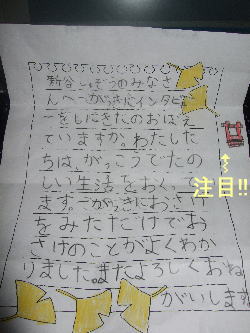 新谷しゅぞうのみなさ
んへ一がっきにインタビュ
ーをしにきたのおぼえ
ていますか。わたした
ちは、がっこうでたの
しい生活をおくって
ます。一がっきにおさけ
をみただけでお
さけのことがよくわか
りました。またよろしくおね
がいします
注目!!